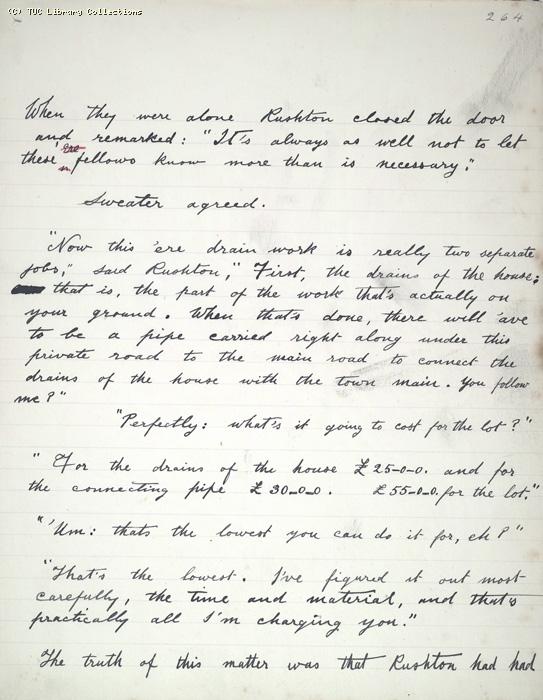 (C) TUC Library Collections
264
When they were alone Rushton closed the door
and remarked: "It's always as well not to let
these 'ere fellows know more than is necessary."
Sweater agreed.
"Now this 'ere drain work is really two separate
jobs," said Rushton," First, the drains of the house:
that is, the part of the work that's actually on
your ground. When that's done, there will 'ave
to be a pipe carried right along under this
private road to the main road to connect the
drains of the house with the town main. You follow
me?"
"Perfectly: what's it going to cost for the lot?"
"For the drains of the house £25-0-0. and for
the connecting pipe £30-0-0. £55-0-0. for the lot."
"'Um: thats the lowest you can do it for, eh?"
"That's the lowest. I've figured it out most
carefully, the time and material, and that's
practically all I'm charging you."
The truth of this matter was that Rushton had had